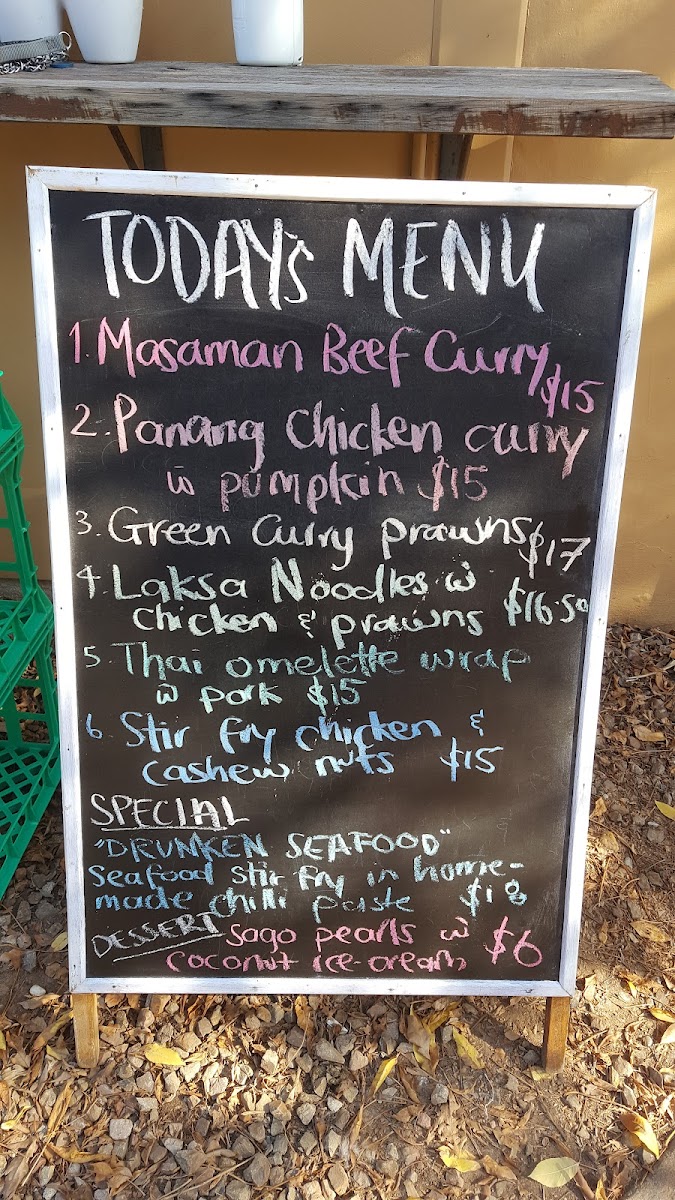 TODAY'S MENU
1. Masaman Beef Curry $15
2. Panang chicken curry
w pumpkin $15
3. Green curry prawns $17
4. Laksa Noodles w
chicken & prawns $16.50
5. Thai omelette wrap
w pork $15
6. Stir fry chicken &
cashew nuts $15
SPECIAL
"DRUNKEN SEAFOOD"
Seafood stir fry in home-
made chilli paste $18
DESSERT Sago pearls w $6
coconut ice-cream